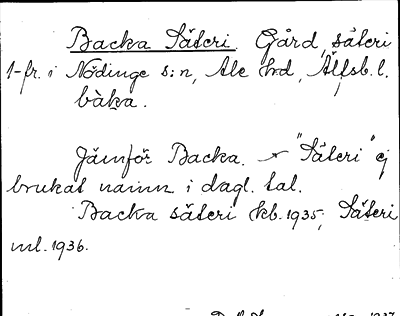 Backa Säteri. Gård, säteri
1-fr. i Nödinge s:n, Ale hd, Älfsb. l.
bàka.
Jämför Backa. "Säteri" ej
brukat namn i dagl. tal.
Backa säteri kb. 1935; Säteri
ml. 1936.